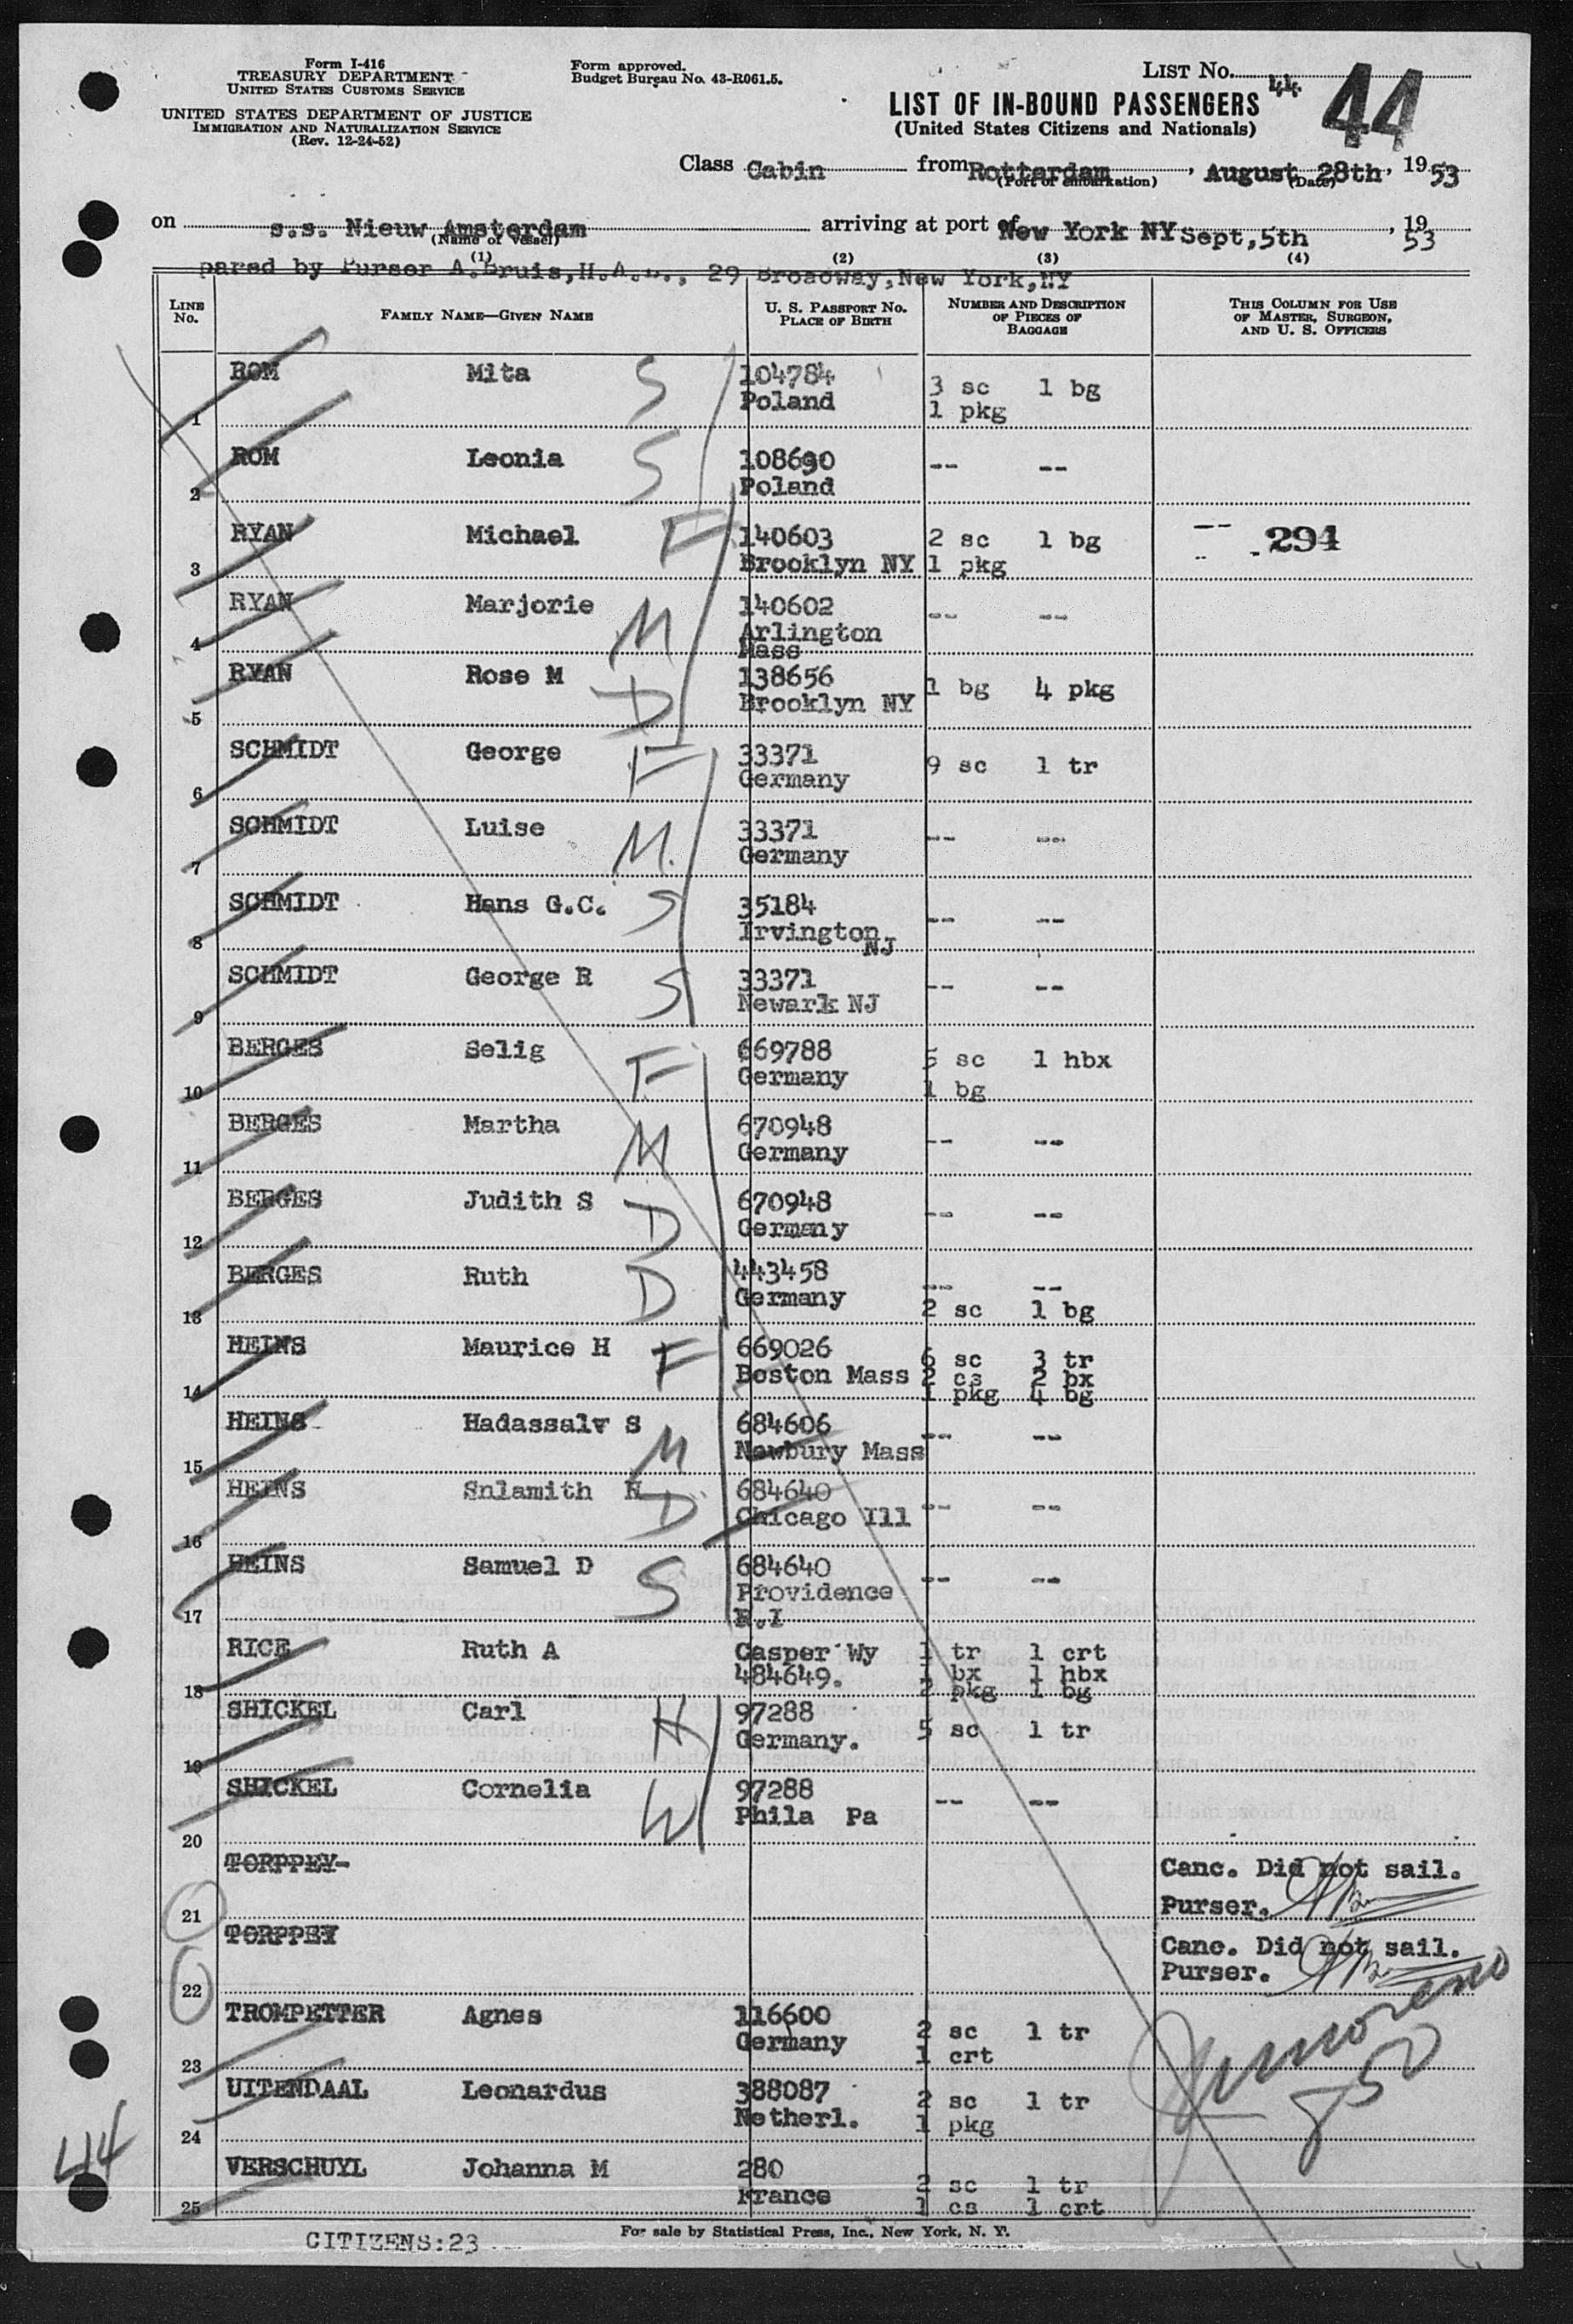 Form I-416
TREASURY DEPARTMENT
UNITED STATES CUSTOMS SERVICE
UNITED STATES DEPARTMENT OF JUSTICE
IMMIGRATION AND NATURALIZATION SERVICE
(Rev. 12-24-52)
Form approved.
Budget Bureau No. 43-R061.5.
LIST NO. 44 44
LIST OF IN-BOUND PASSENGERS
(United States Citizens and Nationals)
Class Cabin from Rotterdam, August 28th, 1953
(Port of embarkation) (Date)
on s.s. Nieuw Amsterdam arriving at port of New York NY Sept, 5th, 1953
(Name of vessel)
(1) (2) (3) (4)
pared by Purser A. Bruis, H.A.L., 29 Broadway, New York, NY
LINE No. FAMILY NAME—GIVEN NAME U. S. PASSPORT NO. PLACE OF BIRTH NUMBER AND DESCRIPTION OF PIECES OF BAGGAGE THIS COLUMN FOR USE OF MASTER, SURGEON, AND U. S. OFFICERS
1 ROM Mita S 104784 3 sc 1 bg
Poland 1 pkg
2 ROM Leonia S 108690 -- --
Poland
3 RYAN Michael F 140603 2 sc 1 bg -- 294
Brooklyn NY 1 pkg
4 RYAN Marjorie M 140602 -- --
Arlington
Mass
5 RYAN Rose M D 138656 1 bg 4 pkg
Brooklyn NY
6 SCHMIDT George F 33371 9 sc 1 tr
Germany
7 SCHMIDT Luise M. 33371 -- --
Germany
8 SCHMIDT Hans G.C. S 35184 -- --
Irvington
NJ
9 SCHMIDT George R S 33371 -- --
Newark NJ
10 BERGES Selig F 669788 5 sc 1 hbx
Germany 1 bg
11 BERGES Martha M 670948 -- --
Germany
12 BERGES Judith S D 670948 -- --
Germany
13 BERGES Ruth D 443458 -- --
Germany 2 sc 1 bg
14 HEINS Maurice H F 669026 6 sc 3 tr
Boston Mass 2 cs 2 bx
1 pkg 4 bg
15 HEINS Hadassalv S M 684606 -- --
Newbury Mass
16 HEINS Snlamith H D 684640 -- --
Chicago Ill
17 HEINS Samuel D S 684640 -- --
Providence
R.I
18 RICE Ruth A Casper Wy 1 tr 1 crt
484649. 1 bx 1 hbx
2 pkg 1 bg
19 SHICKEL Carl H 97288 5 sc 1 tr
Germany.
20 SHICKEL Cornelia W 97288 -- --
Phila Pa
21 TORPPEY- Canc. Did not sail.
Purser.
22 TORPPEY Canc. Did not sail.
Purser.
23 TROMPETTER Agnes 116600 2 sc 1 tr
Germany 1 crt
24 UITENDAAL Leonardus 388087 2 sc 1 tr
Netherl. 1 pkg
850
44
25 VERSCHUYL Johanna M 280 2 sc 1 tr
France 1 cs 1 crt
For sale by Statistical Press, Inc., New York, N. Y.
CITIZENS:23